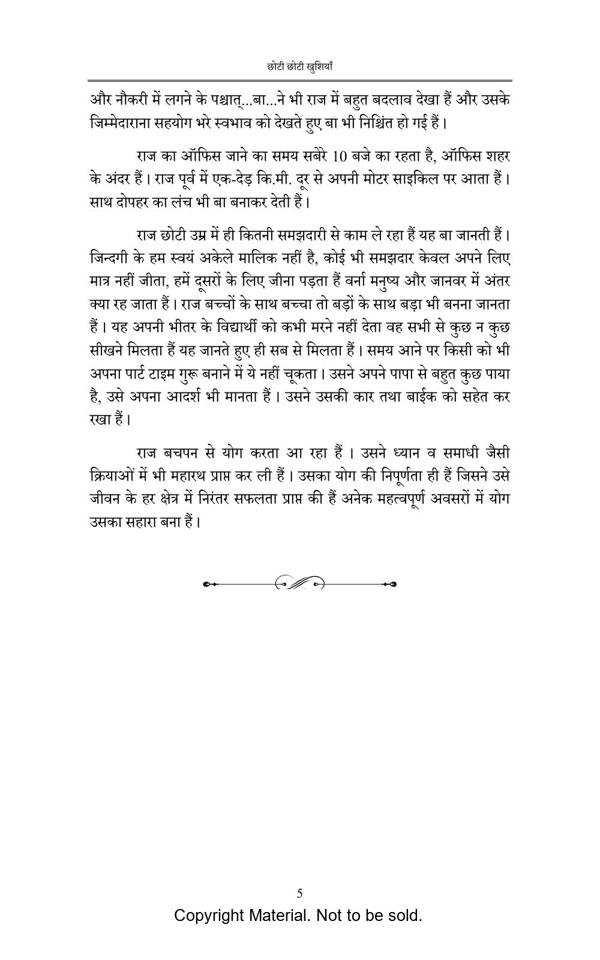 छोटी छोटी खुशियाँ
और नौकरी में लगने के पश्चात्...बा...ने भी राज में बहुत बदलाव देखा हैं और उसके
जिम्मेदाराना सहयोग भरे स्वभाव को देखते हुए बा भी निश्चिंत हो गई हैं।
राज का ऑफिस जाने का समय सबेरे 10 बजे का रहता है, ऑफिस शहर
के अंदर हैं। राज पूर्व में एक-देड़ कि.मी. दूर से अपनी मोटर साइकिल पर आता हैं।
साथ दोपहर का लंच भी बा बनाकर देती हैं।
राज छोटी उम्र में ही कितनी समझदारी से काम ले रहा हैं यह बा जानती हैं।
जिन्दगी के हम स्वयं अकेले मालिक नहीं है, कोई भी समझदार केवल अपने लिए
मात्र नहीं जीता, हमें दूसरों के लिए जीना पड़ता हैं वर्ना मनुष्य और जानवर में अंतर
क्या रह जाता हैं। राज बच्चों के साथ बच्चा तो बड़ों के साथ बड़ा भी बनना जानता
हैं। यह अपनी भीतर के विद्यार्थी को कभी मरने नहीं देता वह सभी से कुछ न कुछ
सीखने मिलता हैं यह जानते हुए ही सब से मिलता हैं। समय आने पर किसी को भी
अपना पार्ट टाइम गुरू बनाने में ये नहीं चूकता। उसने अपने पापा से बहुत कुछ पाया
है, उसे अपना आदर्श भी मानता हैं। उसने उसकी कार तथा बाईक को सहेत कर
रखा हैं।
राज बचपन से योग करता आ रहा हैं। उसने ध्यान व समाधी जैसी
क्रियाओं में भी महारथ प्राप्त कर ली हैं। उसका योग की निपूर्णता ही हैं जिसने उसे
जीवन के हर क्षेत्र में निरंतर सफलता प्राप्त की हैं अनेक महत्वपूर्ण अवसरों में योग
उसका सहारा बना हैं।
5
Copyright Material. Not to be sold.